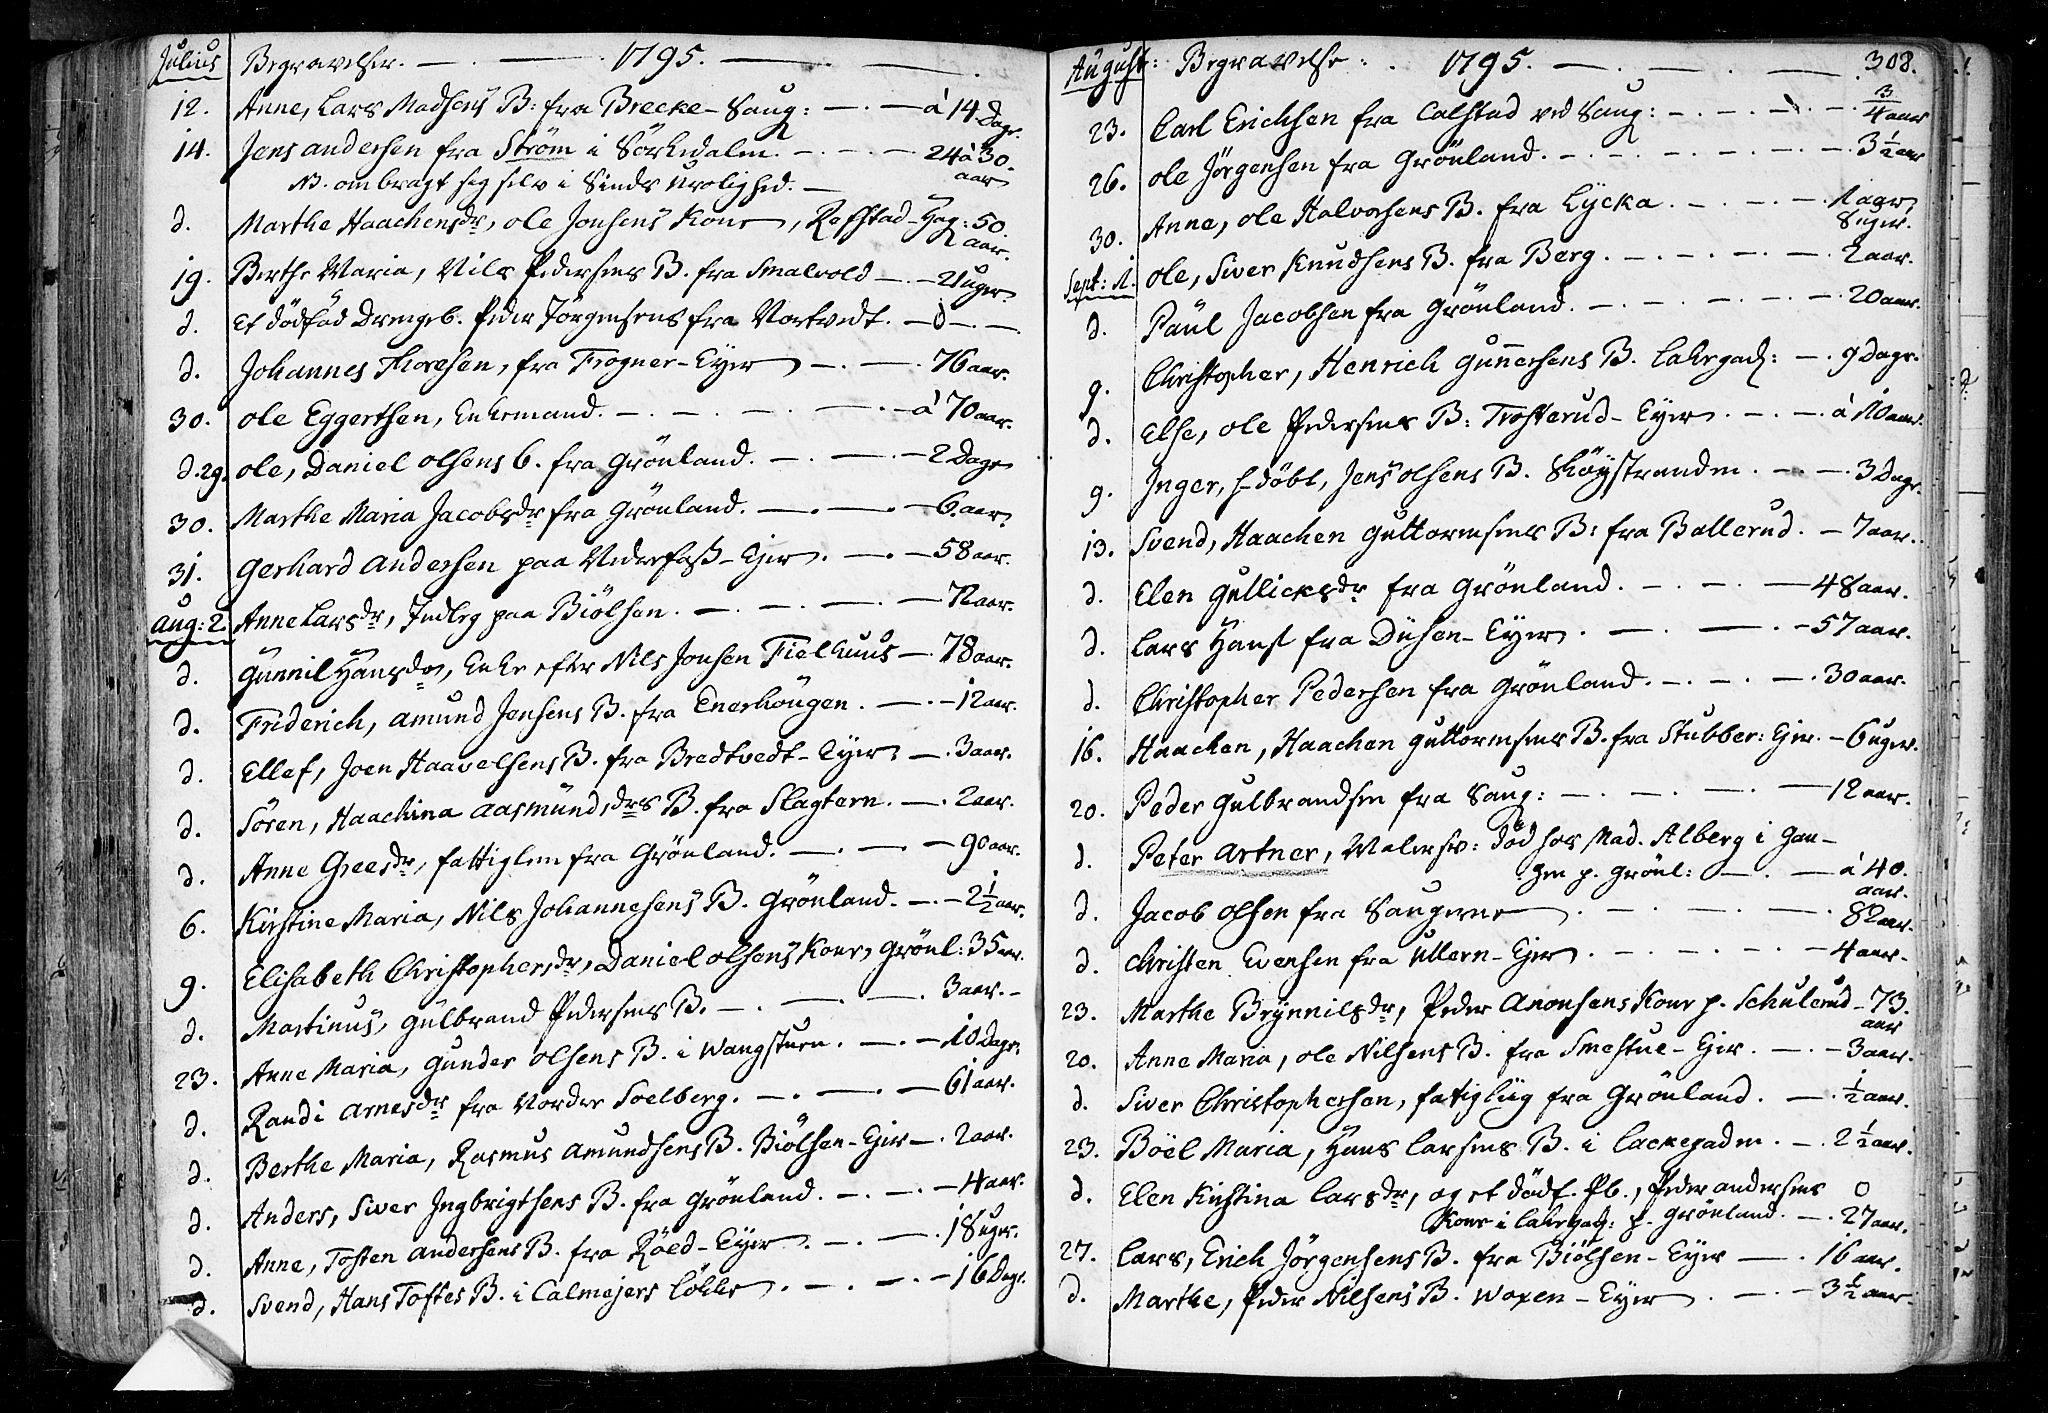 Julius Begravelser. — . — 1795. — . —
12. Anne, Lars Madsens B: fra Brecke-Saug: — . — á 14 Dage.
14. Jens Andersen fra Ström i Sörkedalen. — . — . — 24 á 30 aar
NB. ombragt sig selv i Sinds Urolighed. —
d. Marthe Haachensdr, Ole Jonsens Kone, Roffstad-Hag: 50 aar.
19. Berthe Maria, Nils Pedersens B. fra Smalvold — . — 21 uger.
d. Et dödfäd Drengeb. Peder Jörgensens fra Vortvedt. — d — . —
d. Johannes Thoresen, fra Frogner-Eyer — . — . 76 aar.
30. Ole Eggertsen, Enkemand. — . — . — . — á 70 aar.
d. 29. Ole, Daniel Olsens b. fra Grönland. — . — . — 2 Dage
30. Marthe Maria Jacobsdr fra Grönland. — . — . — 6. aar.
31. Gerhard Andersen paa Vederfass-Ejer. — . — 58 aar.
Aug: 2. Anne Larsdr, Inderg paa Biölsen. — . — . — 72 aar.
d. Gunnil Hansdr, Enke efter Nils Jonsen Fielhuus — . 78 aar.
d. Friderich, Amund Jensens B. fra Enerhougen. — . — 12 aar.
d. Ellef, Joen Haavelsens B. fra Bredtvedt-Eyer — . 3 aar.
d. Sören, Haachina Aasmundsdrs B. fra Slagtern. — . 2 aar.
d. Anne Greesdr, fattiglem fra Grönland. — . — . — 90 aar.
6. Kirstine Maria, Nils Johannesens B. Grönland. — . — 2 1/2 aar.
9. Elisabeth Christophersdr, Daniel Olsens Kone, Grönl: 35 aar.
d. Martinus, Gulbrand Pedersens B. — . — . — . 3 aar. —
23. Anne Maria, Gunder Olsens B. i Wangstuen. — . — 10 Dage.
d. Randi Arnesdr fra Nordre Soelberg. — . — . — 61 aar.
d. Berthe Maria, Rasmus Amundsens B. Biölsen-Ejer — . 2 aar.
d. Anders, Siver Ingbrigtsens B. fra Grönland. — . — . — 4 aar.
d. Anne, Tosten Andersens B. fra Röed-Eyer — . — . 18 uger.
d. Svend, Hans Toftes B. i Calmejers Lökke. — . — . — 16 Dage.
August: Begravelse: . 1795. — . — . — 308.
23. Carl Erichsen fra Calstad ved Saug: — . — . — 3/4 aar
26. Ole Jörgensen fra Grönland. — . — . — . — 3 1/2 aar
30. Anne, Ole Halvorsens B. fra Lycka. — . — . — 1 aar, 8 uger.
Sept: 1. Ole, Siver Knudsens B. fra Berg. — . — . — . — 2 aar.
d. Paul Jacobsen fra Grönland. — . — . — . — 20 aar.
9. Christopher, Henrich Gunnersens B. Lakegad: — . 9 Dage.
d. Else, Ole Pedersens B: Trosterud-Eyer. — . — á 10 aar.
9. Inger, h-döbt, Jens Olsens B. Köystranden. — . — 3 Dage.
13. Svend, Haachen Guttormsens B: fra Ballerud. — 7 aar.
d. Elen Gullicksdr fra Grönland. — . — . — 48 aar.
d. Lars Hans: fra Düsen-Eyer. — . — . — 57 aar.
d. Christopher Pedersen fra Grönland. — . — . — 30 aar.
16. Haachen, Haachen Guttormsens B. fra Stubber: Ejer. — 6 uger.
20. Peder Gulbrandsen fra Saug: — . — . — . — 12 aar.
d. Peter Artner, Malersv: död hos Mad. Alberg i Gam-
hzen p. Grönl: — . — á 40. aar.
d. Jacob Olsen fra Saugerne . — . — . — 82 aar.
d. Christen Evensen fra Ullern-Ejer. — . — . — 4 aar.
23. Marthe Brynnilsdr, Peder Anonsens Kone p. Schulerud — 73. aar
20. Anne Maria, Ole Nilsens B. fra Smestue-Ejer. — . — 3 aar.
d. Siver Christophersen, fatigliig fra Grönland. — . 1/2 aar.
23. Böel Maria, Hans Larsens B. i Lackegaden. — . 2 1/2 aar.
d. Elen Kirstina Larsdr, og et dödf. Pb., Peder Andersens 0
Kone i Lakegad: p. Grönland. — . 27 aar.
27. Lars, Erich Jörgensens B. fra Biölsen-Eyer — . 16 aar.
d. Marthe, Peder Nilsens B. Woxen-Eyer. — . — 3 1/2 aar.